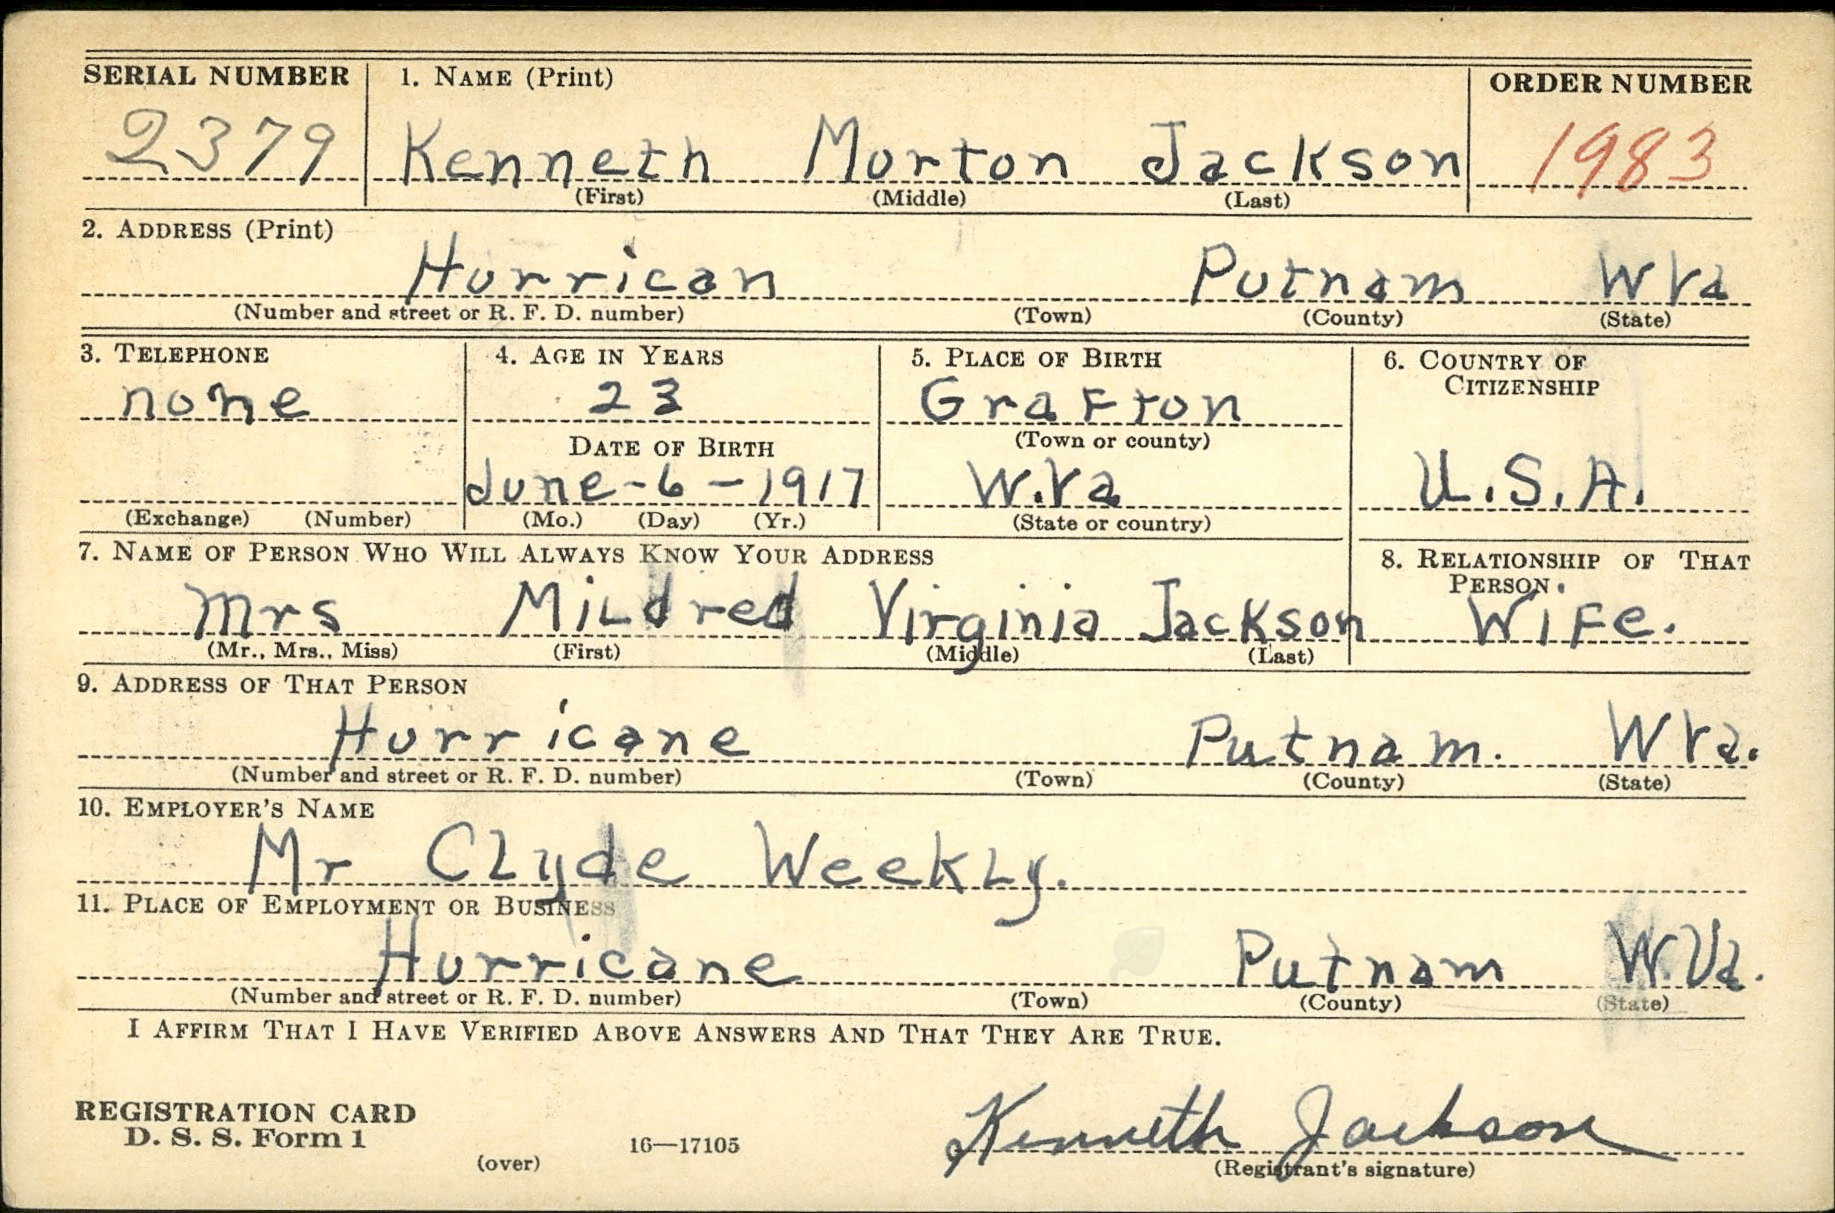 SERIAL NUMBER 1. NAME (Print) ORDER NUMBER
2379 Kenneth Morton Jackson 1983
(First) (Middle) (Last)
2. ADDRESS (Print)
Hurrican Putnam W Va
(Number and street or R. F. D. number) (Town) (County) (State)
3. TELEPHONE 4. AGE IN YEARS 5. PLACE OF BIRTH 6. COUNTRY OF
CITIZENSHIP
none 23 Grafton
DATE OF BIRTH (Town or county)
June-6-1917 W.Va U.S.A.
(Exchange) (Number) (Mo.) (Day) (Yr.) (State or country)
7. NAME OF PERSON WHO WILL ALWAYS KNOW YOUR ADDRESS 8. RELATIONSHIP OF THAT
PERSON.
Mrs Mildred Virginia Jackson Wife.
(Mr., Mrs., Miss) (First) (Middle) (Last)
9. ADDRESS OF THAT PERSON
Hurricane Putnam. W Va.
(Number and street or R. F. D. number) (Town) (County) (State)
10. EMPLOYER'S NAME
Mr Clyde Weekly.
11. PLACE OF EMPLOYMENT OR BUSINESS
Hurricane Putnam W.Va.
(Number and street or R. F. D. number) (Town) (County) (State)
I AFFIRM THAT I HAVE VERIFIED ABOVE ANSWERS AND THAT THEY ARE TRUE.
REGISTRATION CARD
D. S. S. Form 1 16—17105 Kenneth Jackson
(over) (Registrant's signature)